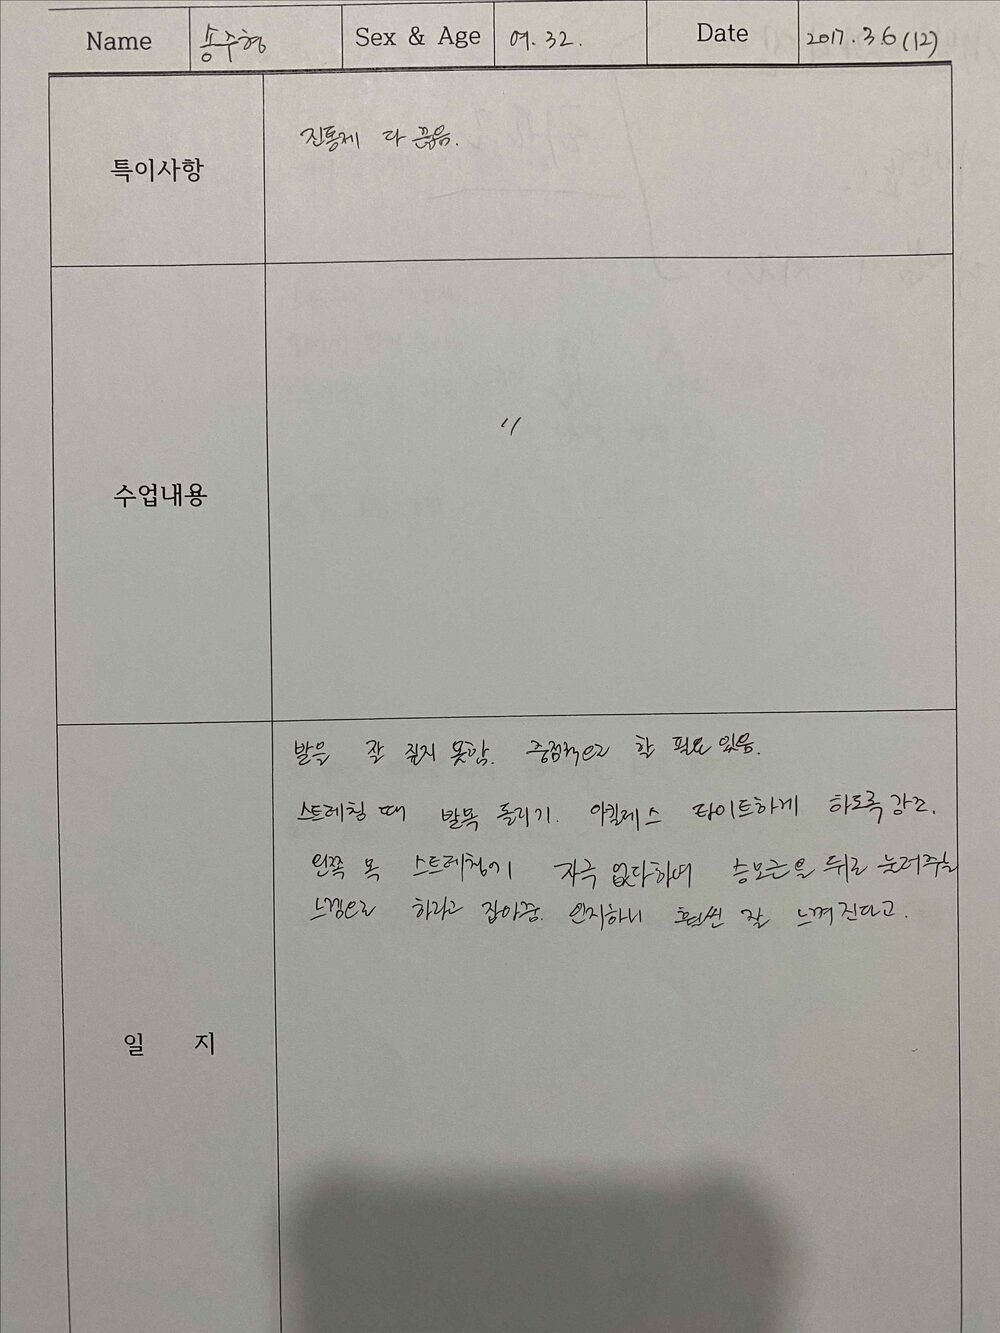 Name 송주형 Sex & Age 여. 32. Date 2017. 3.6 (12)
특이사항 진통제 다 끊음.
수업내용 〃
발을 잘 쥐지 못함. 중점적으로 할 필요 있음.
스트레칭 때 발목 돌리기. 아킬레스 타이트하게 하도록 강조.
왼쪽 목 스트레칭이 자극 없다하여 승모근을 뒤로 눌러주는
느낌으로 하라고 잡아줌. 인지하니 훨씬 잘 느껴진다고.
일 지